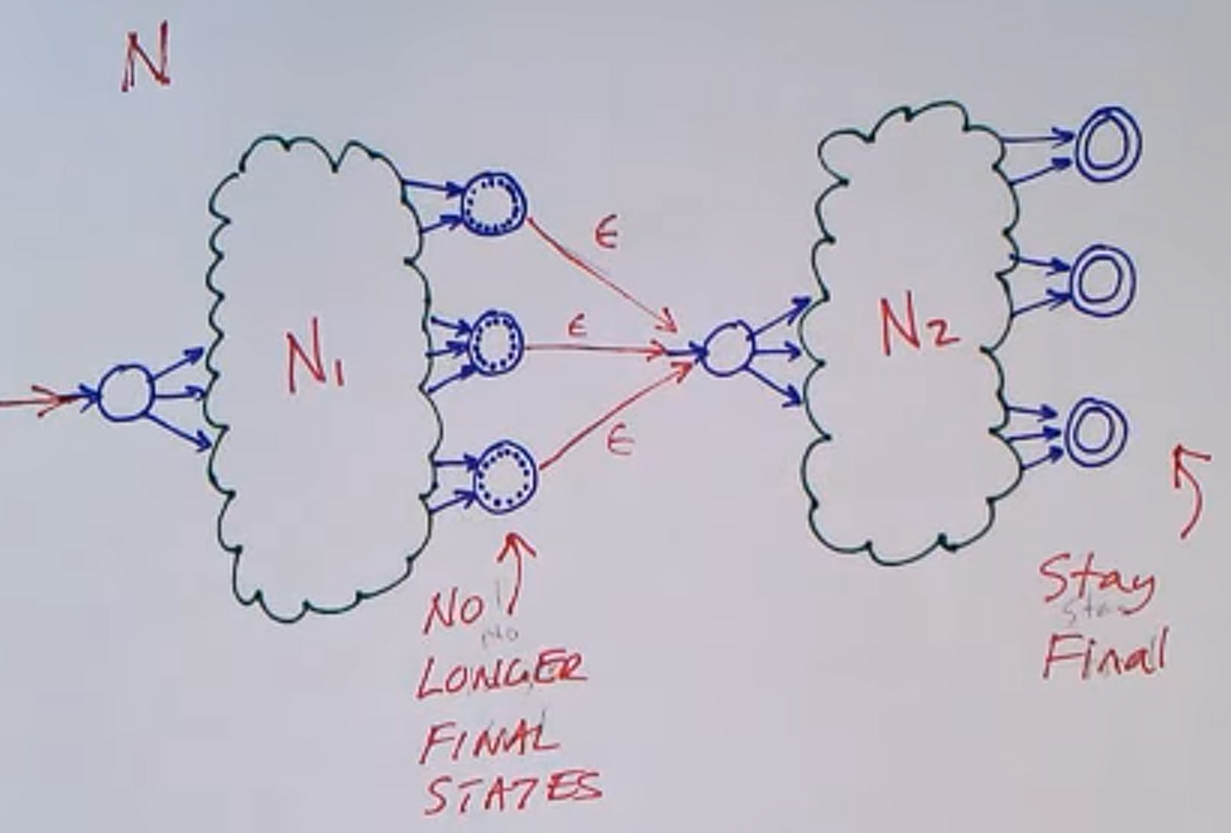 N
ϵ
ϵ
N₁
N₂
ϵ
NO
LONGER
FINAL
STATES
Stay
Final